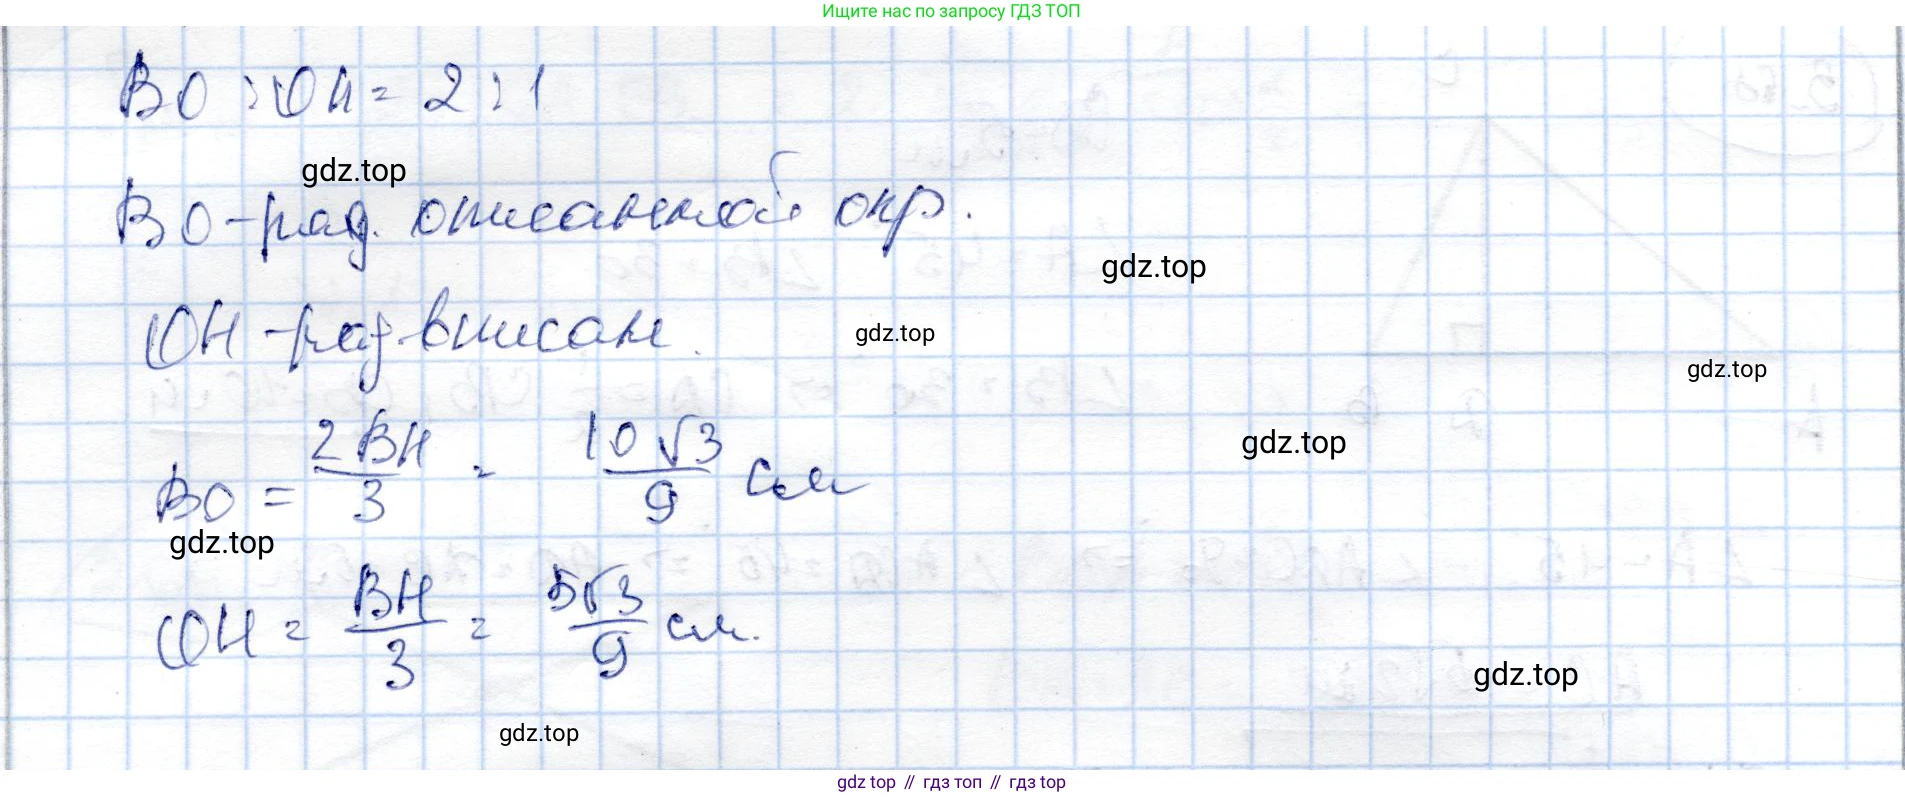 Ищите нас по запросу ГДЗ ТОП
BO : OH = 2 : 1
gdz.top
BO - рад. описанной окр.
gdz.top
OH - рад. вписан.
gdz.top
gdz.top
BO = 2BH/3 = 10√3/9 см
gdz.top
gdz.top
OH = BH/3 = 5√3/9 см.
gdz.top
gdz.top
gdz.top // гдз топ // гдз top